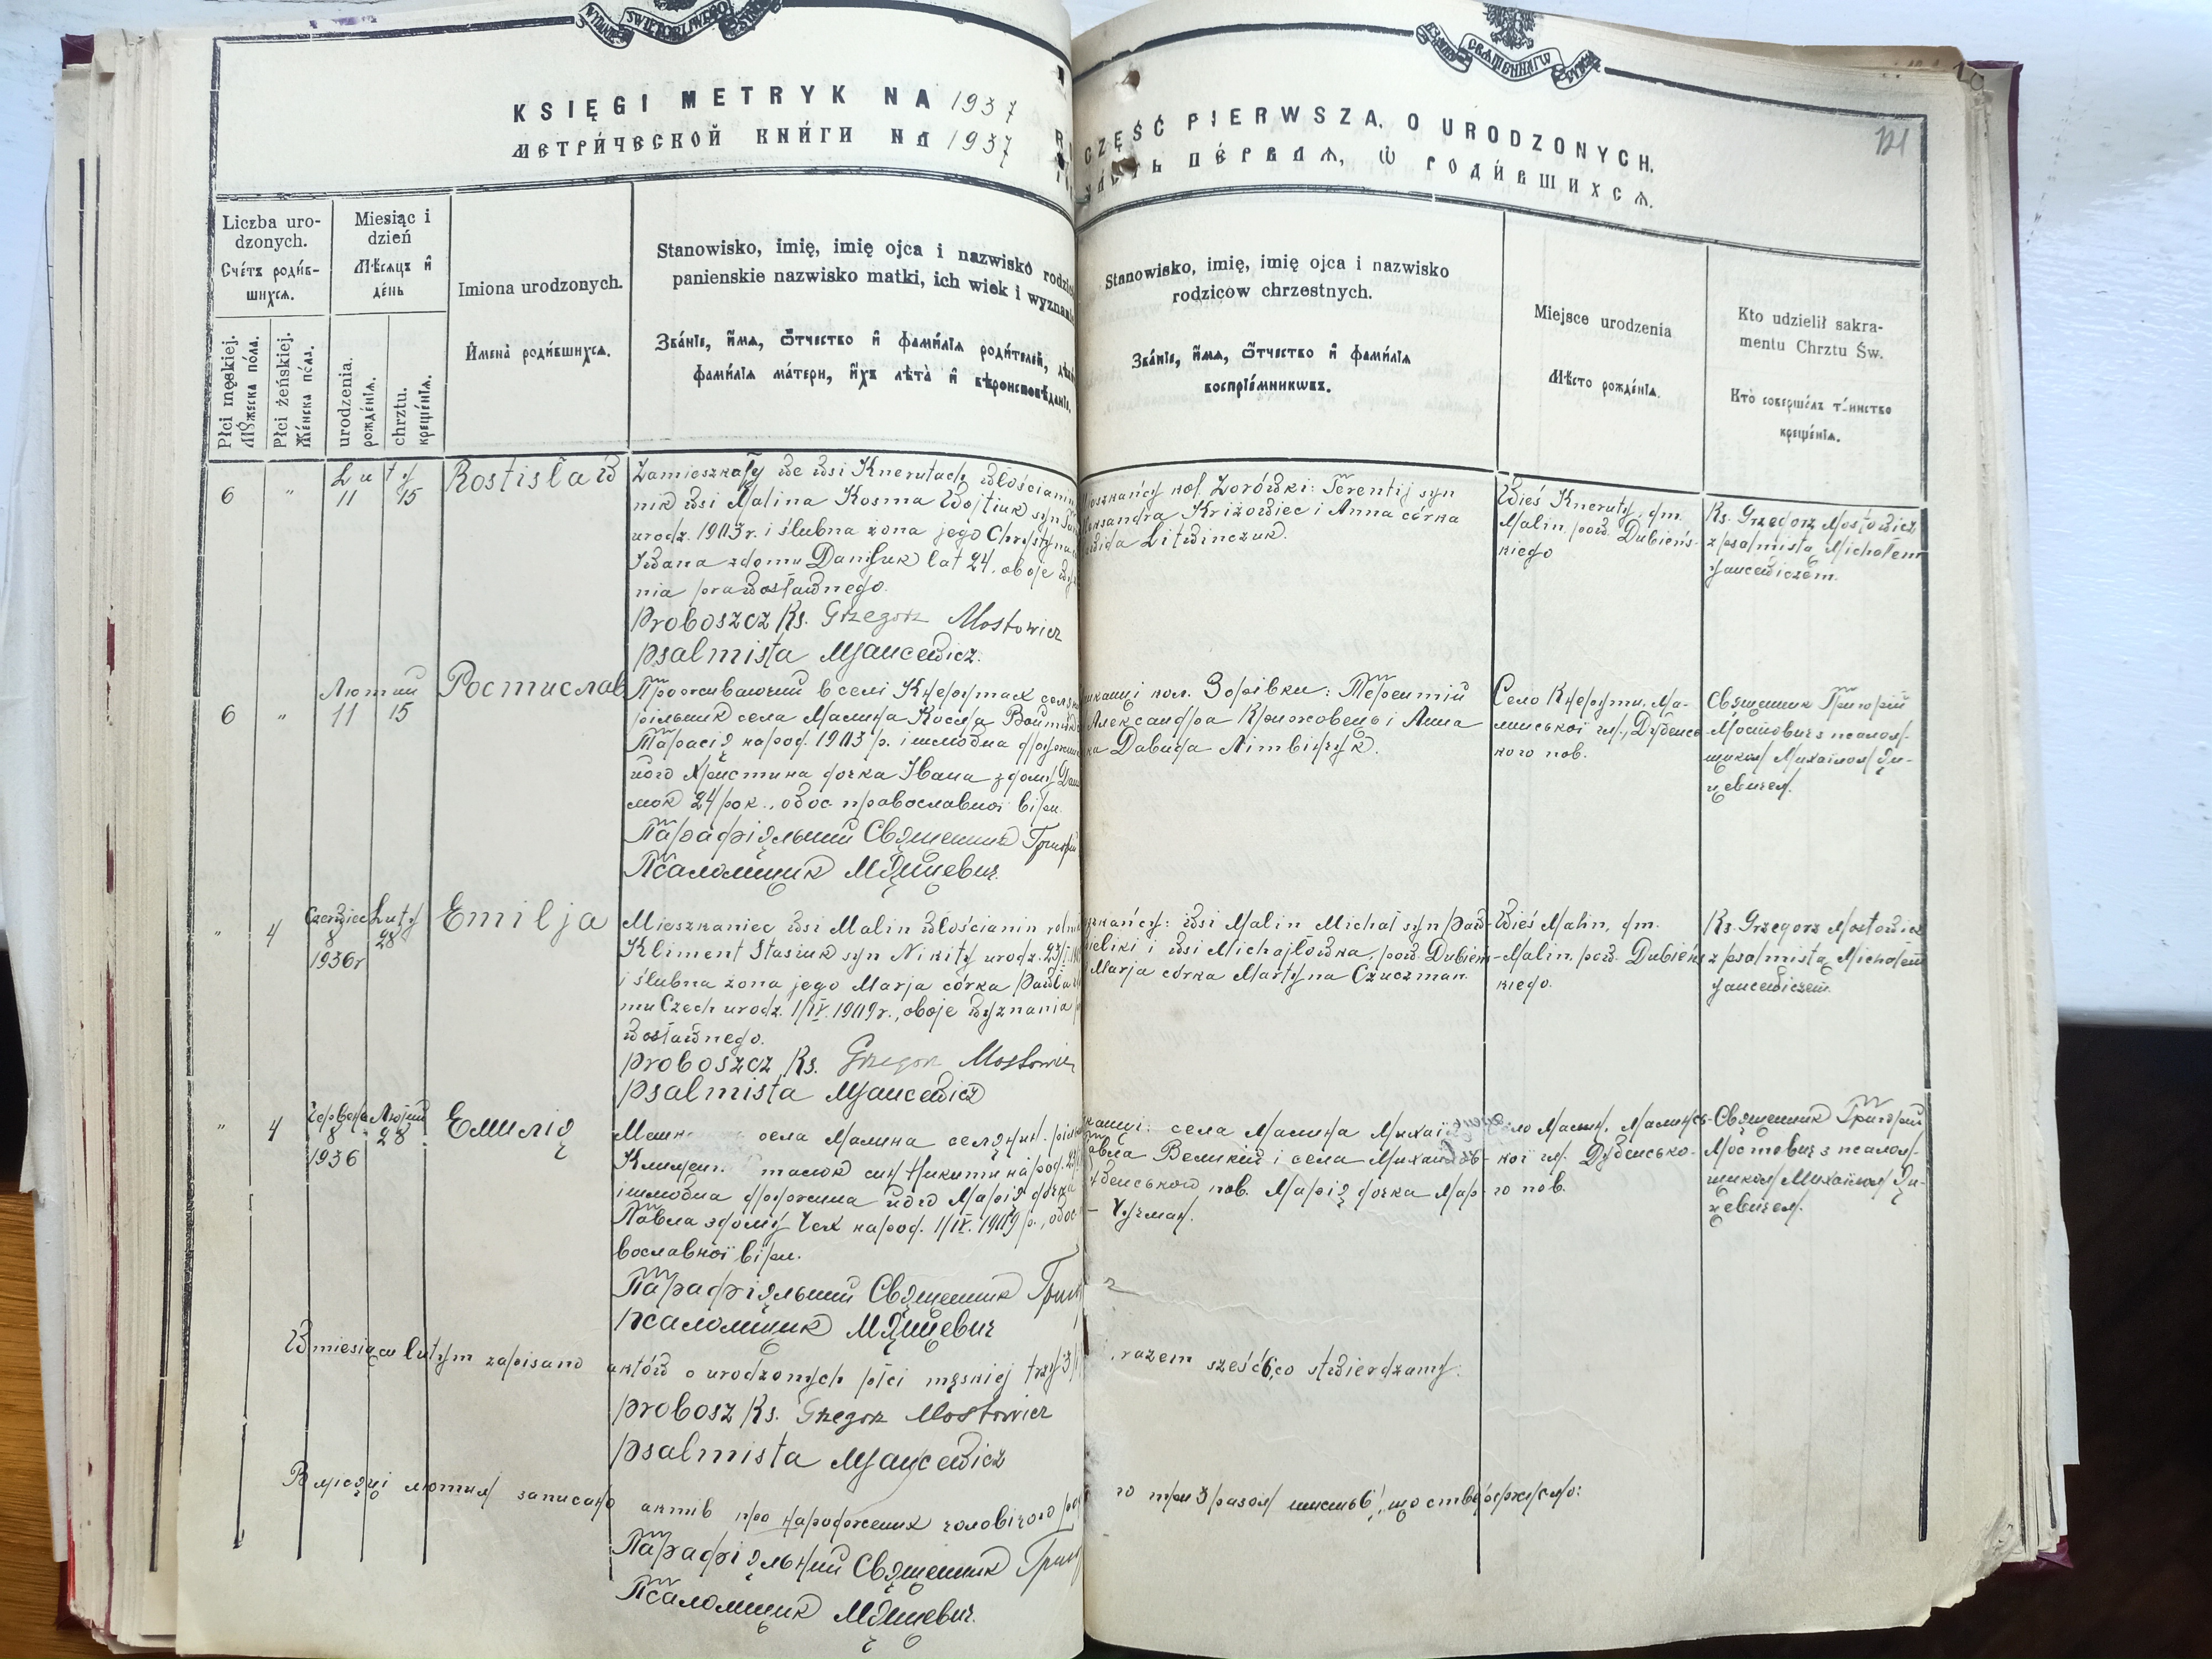 KSIĘGI METRYK NA 1937
МЕТРИ́ЧЕСКОЙ КНИ́ГИ НА 1937
CZĘŚĆ PIERWSZA. O URODZONYCH.
ПЕ́РВАѦ, Ѡ҆ РОДИ́ВШИХСѦ.
121
Liczba uro-
dzonych.
Сче́тъ роди́в-
шихсѧ.
Miesiąc i
dzień
Мѣ́сѧцъ и҆
де́нь
Płci męskiej.
Мꙋ́жеска по́ла.
Płci żeńskiej.
Же́нска по́ла.
urodzenia.
рожде́нїѧ.
chrztu.
креще́нїѧ.
Imiona urodzonych.
И҆мена̀ роди́вшихсѧ.
Stanowisko, imię, imię ojca i nazwisko
panienskie nazwisko matki, ich wiek i
Зва́нїе, и҆́мѧ, ѻ҆́тчество и҆ фами́лїѧ роди́телей,
фами́лїѧ ма́тери, и҆́хъ лѣ́та и҆ вѣроисповѣ́данїе.
Stanowisko, imię, imię ojca i nazwisko
rodziców chrzestnych.
Зва́нїе, и҆́мѧ, ѻ҆́тчество и҆ фами́лїѧ
воспрїе́мникѡвъ.
Miejsce urodzenia
Мѣ́сто рожде́нїѧ.
Kto udzielił sakra-
mentu Chrztu Św.
Кто̀ соверша́лъ та́инство
креще́нїѧ.
6 " Luty
11 15
Rostisław
Zamieszkały we wsi Knerutach włościanin
nik wsi Malina Kosma Wojtiuk syn
urodz. 1903 r. i ślubna żona jego Chrystyna
Iwana zdomu Daniluk lat 24, oboje
nia prawosławnego.
Proboszcz Ks. Grzegorz Mostowicz
Psalmista MJancewicz.
kol. Zorówki: Terentij syn
Kriżowiec i Anna córka
Litwinczuk.
Wieś Kneruty, gm.
Malin, pow. Dubieńs-
kiego
Ks. Grzegorz Mostowicz
z psalmistą Michałem
Jancewiczem.
6 " Лютий
11 15
Ростислав
Проживаючий в селі Кнерутах
рільник села Малина Косма Войтюк
Тарасія народ. 1903 р. і шлюбна дружина
його Христина дочка Івана здому
24 рок., обоє православної віри.
Парафіяльний Священник
Псаломщик МЯнцевич.
кол. Зорівки: Терентій
Александра Крижовець і Анна
Давида Літвінчук.
Село Кнерути, Ма-
линської гм., Дубенсь-
кого пов.
Священник Григорій
Мостович з псалом-
щиком Михаїлом Ян-
цевичем.
" 4 Czerwiec Luty
8 28
1936 r
Emilja
Mieszkaniec wsi Malin włościanin
Kliment Stasiuk syn Nikity urodz.
i ślubna żona jego Marja córka Pawła
mu Czech urodz. 1/IV. 1909 r., oboje wyznania
wosławnego.
Proboszcz Ks. Grzegorz Mostowicz
Psalmista MJancewicz
wsi Malin Michał syn Paw-
i wsi Michajłówka, pow. Dubieńs-
Marja córka Martyna Czuczman.
Wieś Malin, gm.
Malin, pow. Dubieńs-
kiego.
Ks. Grzegorz Mostowicz
z psalmistą Michałem
Jancewiczem.
" 4 Червень Лютий
8 28
1936
Емилія
села Малина селянин
син Никити народ.
і шлюбна дружина його Марія дочка
Павла здому Чех народ. 1/IV. 1909 р., обоє
вославної віри.
Парафіяльний Священник
Псаломщик МЯнцевич
села Малина Михаїл
Павла Великий і села Михаилов-
пов. Марія дочка Мар-
Чучман.
Малин, Малинсь-
кої гм. Дубенсько-
го пов.
Священник Григорій
Мостович з псалом-
щиком Михаїлом Ян-
цевичем.
W miesiącu lutym zapisano aktów o urodzonych płci męskiej trzy 3
, razem sześć 6, co stwierdzamy:
Probosz Ks. Grzegorz Mostowicz
Psalmista MJancewicz
В місяці лютим записано актів про народжених чоловічого
го три 3 разом шість 6, що стверджуємо:
Парафіяльний Священник
Псаломщик МЯнцевич.